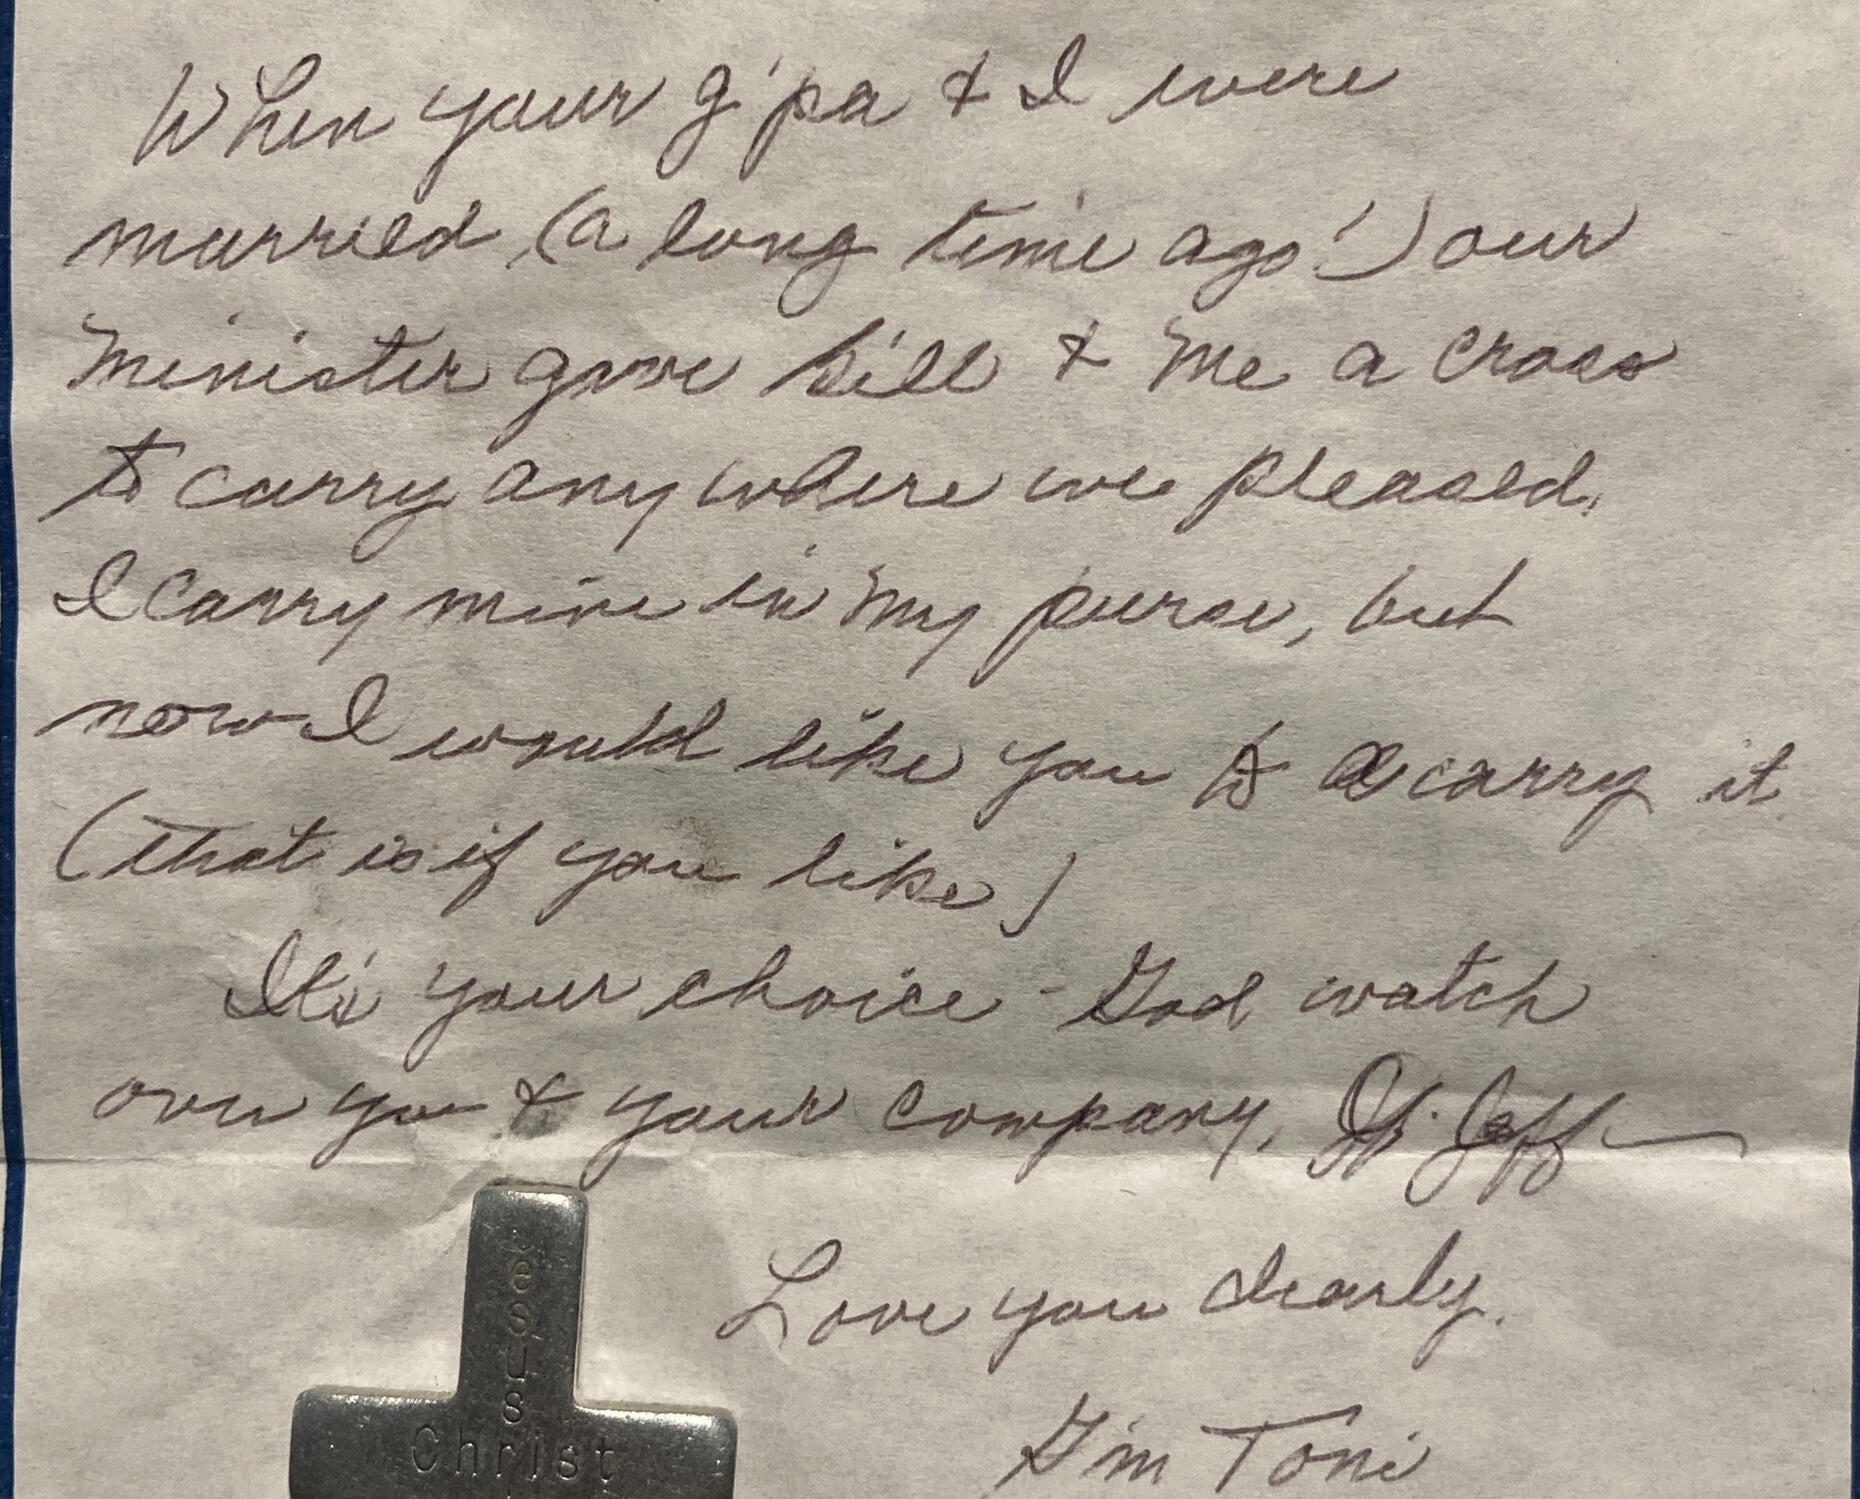 When your g'pa & I were
married, (a long time ago!) our
minister gave Bill & me a cross
to carry anywhere we pleased.
I carry mine in my purse, but
now I would like you to carry it
(that is if you like)
It's your choice - God watch
over you & your company, Jeff
Love you dearly.
G'm Toni
Jesus
Christ